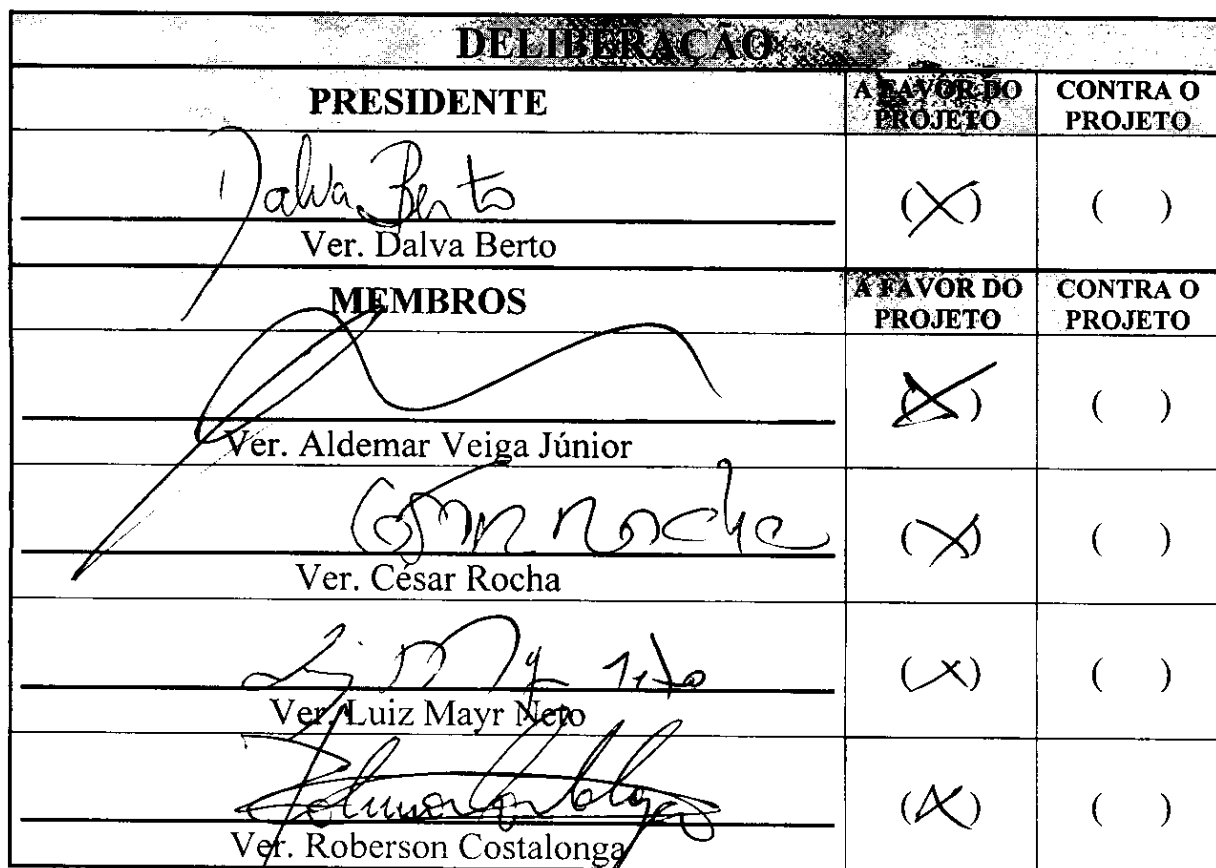 DELIBERAÇÃO
PRESIDENTE
A FAVOR DO PROJETO
CONTRA O PROJETO
Dalva Berto
(X)
( )
Ver. Dalva Berto
MEMBROS
A FAVOR DO PROJETO
CONTRA O PROJETO
(X)
( )
Ver. Aldemar Veiga Júnior
César Rocha
(X)
( )
Ver. César Rocha
(X)
( )
Ver. Luiz Mayr Neto
(X)
( )
Ver. Roberson Costalonga